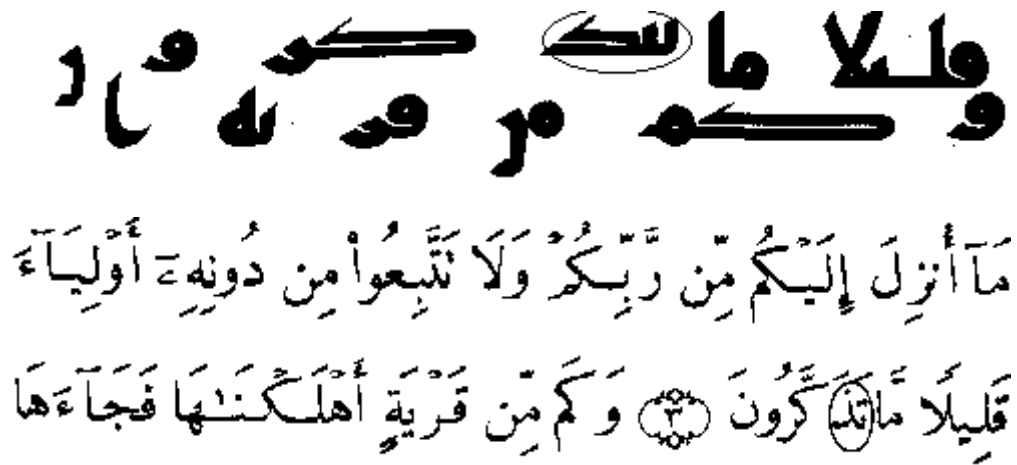 ڡلىلا ما ىىدكروں
وكم مں ڡرىه ا
مَآ أُنزِلَ إِلَيْكُم مِّن رَّبِّكُمْ وَلَا تَتَّبِعُوا۟ مِن دُونِهِۦٓ أَوْلِيَآءَ
قَلِيلًا مَّا تَذَكَّرُونَ ٣ وَكَم مِّن قَرْيَةٍ أَهْلَكْنَـٰهَا فَجَآءَهَا